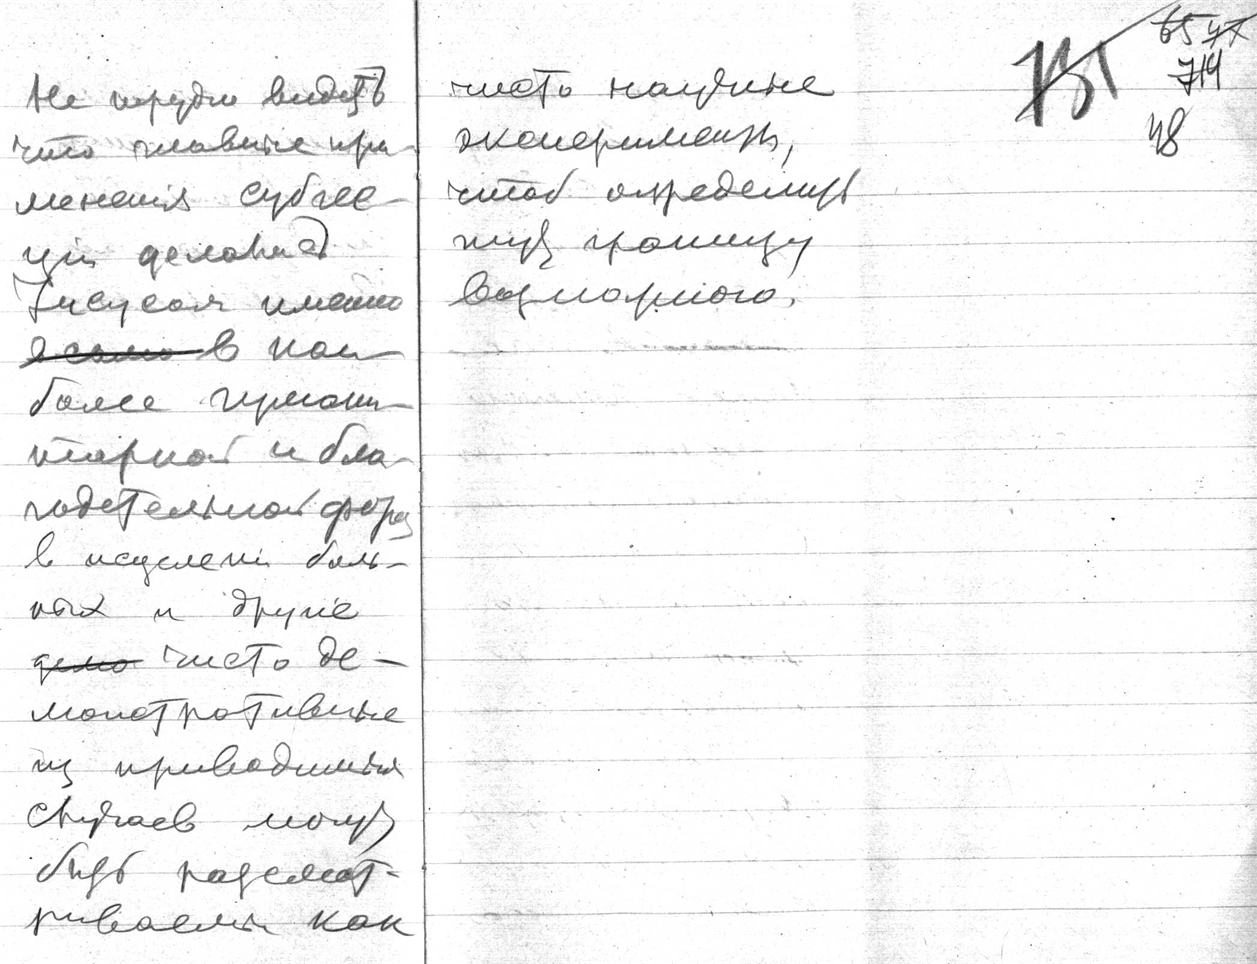 Не трудно видеть
что главные при-
менения субгее-
ціи делались
Іисусом именно
в наи-
более гумани-
тарной и бла-
годетельной форме
в исцелени боль-
ных и другие
дело чисто де-
монстративные
из приводимых
случаев могут
быть рассмат-
риваемы как
чисто научные
эксперименты,
чтоб определить
границу
возможного.
65 47
714
48